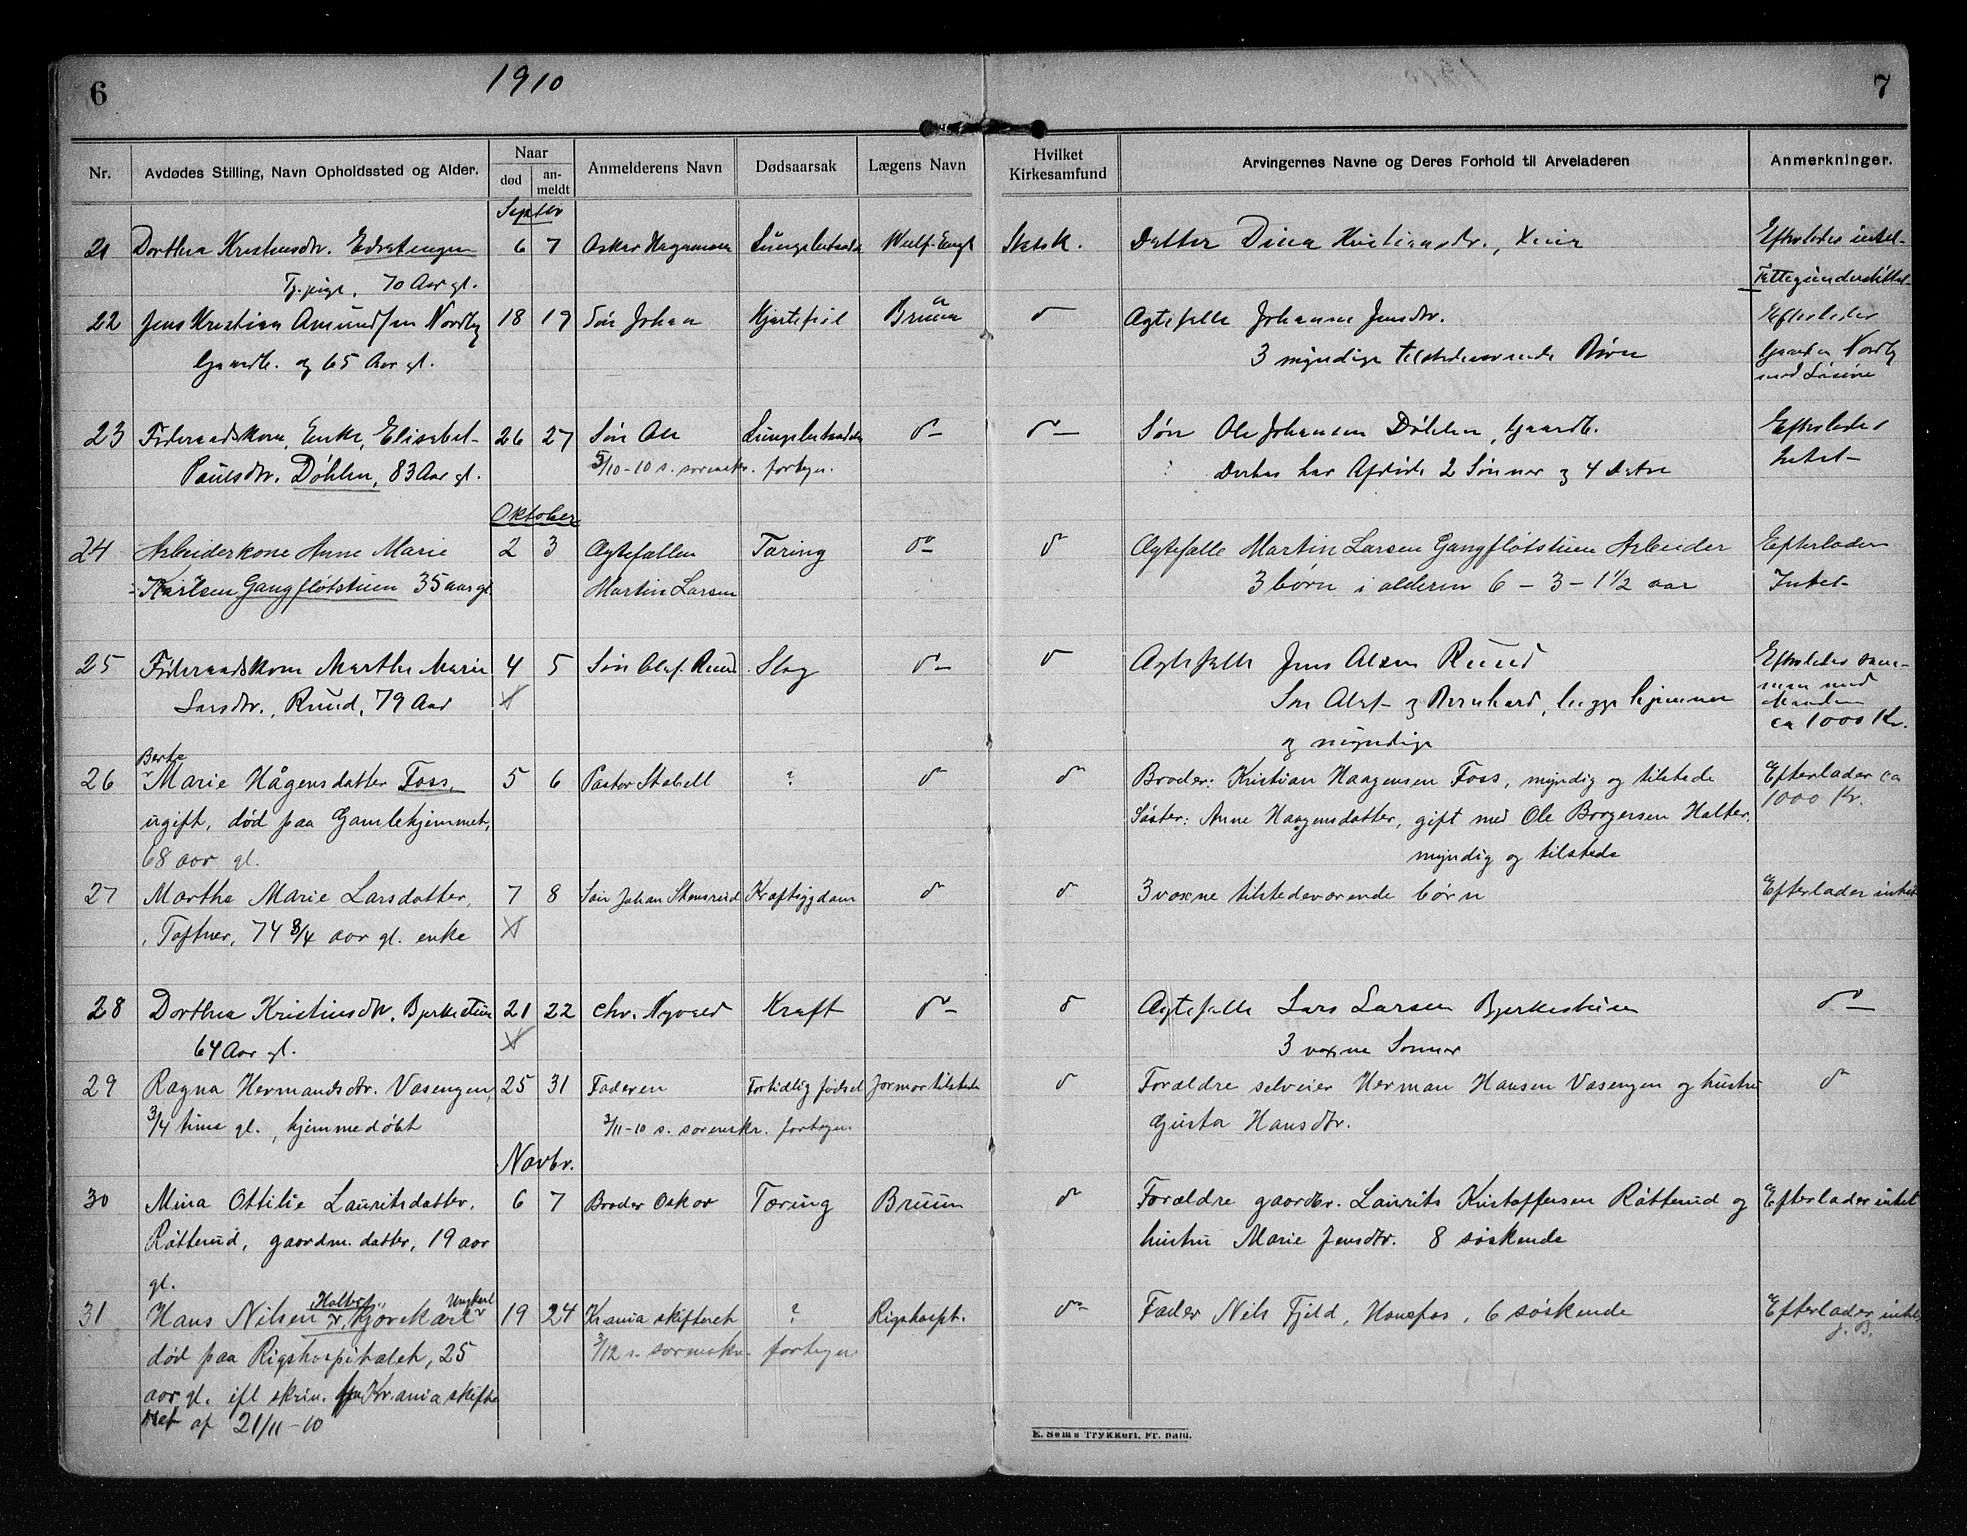 6
1910
7
Nr.
Avdødes Stilling, Navn Opholdssted og Alder.
Naar
død
an-
meldt
Anmelderens Navn
Dødsaarsak
Lægens Navn
Hvilket
Kirkesamfund
Arvingernes Navne og Deres Forhold til Arveladeren
Anmerkninger.
Septbr
21 Dorthea Kristiansdtr. 6 7 Oskar Statsk. Datter Dina Kristiansdtr. Efterlader intet-
Tj. pige, 70 Aar gl. Fattigunderstøttet-
22 Jens Kristian Amundsen Nordby 18 19 Søn Johan Hjertefeil Bruun d Ægtefælle Johanne Jensdtr. Efterlader
Gaardb. og 65 Aar gl. 3 myndige tilstedeværende Børn Nordby
med Løsøre
23 Føderaadskone, Enke, Elisabet 26 27 Søn Ole d- d- Søn Ole Johansen Døhlen, Gaardb. Efterlader
Paulsdtr. Døhlen, 83 Aar gl. 5/10-10 s. sorenskr. fortegn. 2 Sønner og 4 Døtre Intet-
Oktober
24 Arbeiderkone Anne Marie 2 3 Ægtefællen Tæring do- d Ægtefælle Martin Larsen Gangfløtstuen Arbeider Efterlader
Karlsen Gangfløtstuen 35 aar gl Martin Larsen 3 børn i alderen 6 - 3 - 1½ aar Intet-
25 Føderaadskone Marthe Marie 4 5 Søn Olaf Ruud Slag d- d Ægtefælle Jens Olsen Ruud Efterlader sam-
Larsdtr., Ruud, 79 Aar Søn Olaf og Bernhard, begge hjemme men med
Manden
ca 1000 Kr.
og myndige
Berte
26 Marie Hågensdatter Foss, 5 6 Pastor Stabell ? d d Broder: Kristian Haagensen Foss, myndig og tilstede Efterlader ca
1000 Kr.
ugift, død paa Gamlehjemmet, Søster: Anne Haagensdatter, gift med Ole Borgersen Halter,
68 aar gl. myndig og tilstede
27 Marthe Marie Larsdatter, 7 8 Søn Johan Stensrud Kraftsygdom d d 3 voxne tilstedeværende børn Efterlader intet
Toftner, 74 3/4 aar gl. enke
28 Dorthea Kristiansdtr. Bjerkestuen 21 22 Chr. Kraft do- d Ægtefælle Lars Larsen Bjerkestuen do-
64 Aar gl. 3 voxne Sønner
29 Ragna Hermandsdtr. Vasengen, 25 31 Faderen Fortidlig fødsel Jormor tilstede d Forældre selveier Herman Hansen Vasengen og hustru d
3/4 time gl., hjemmedøbt 3/11-10 s. sorenskr. fortegn. Gusta Hansdtr.
Novbr.
30 Mina Ottilie Lauritsdatter, 6 7 Broder Oskar Tæring Bruun d Forældre gaardbr. Laurits Kristoffersen Råtterud og Efterlader intet
Råtterud, gaardm. datter, 19 aar hustru Marie Jensdtr. 8 søskende
gl.
Ungkarl
31 Hans Nilsen kjørekarl 19 24 Kr.ania skifteret ? Rigshospt. do Fader Nils Fjeld, Hønefos, 6 søskende Efterlader intet
J. B.
død paa Rigshospitalet, 25 3/12 s. sorenskr. fortegn
aar gl. ifl skriv. fra Kr.ania skifte
ret af 21/11-10
E. Sem's Trykkeri, Fr.hald.